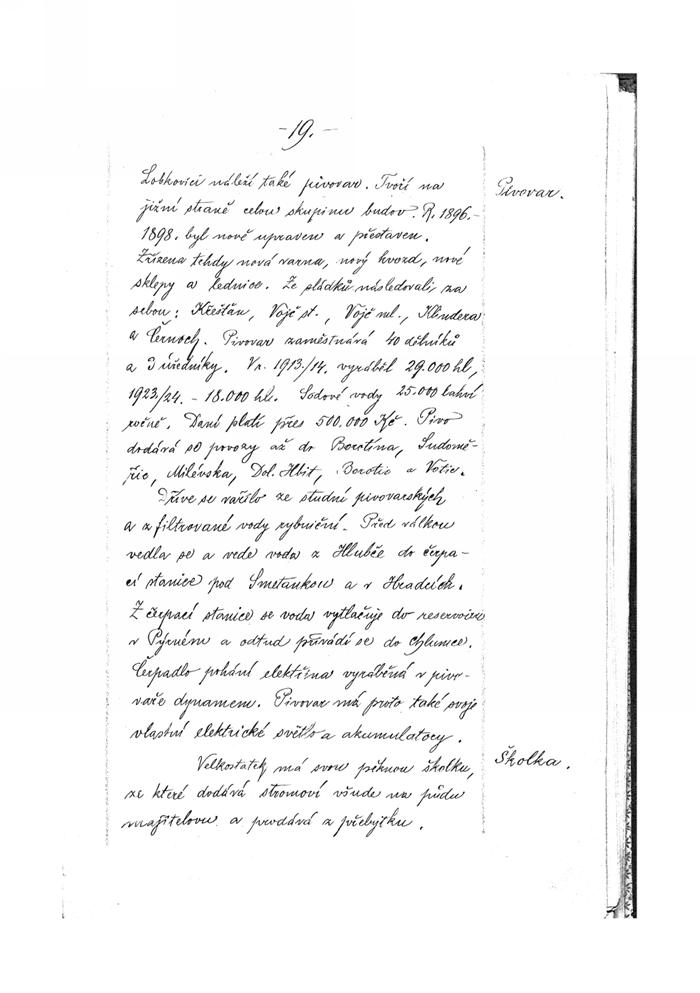 -19.-
Lobkovici náleží také pivovar. Tvoří na
Pivovar.
jižní straně celou skupinu budov. R. 1896.-
1898. byl nově upraven a přestaven.
Zřízena tehdy nová varna, nový hvozd, nové
sklepy a lednice. Ze sládků následovali za
sebou: Křešťan, Vojč st., Vojč ml., Klindera
a Černoch. Pivovar zaměstnává 40 dělníků
a 3 úředníky. V r. 1913/14. vyráběl 29.000 hl,
1923/24. - 18.000 hl. Sodové vody 25.000 lahví
ročně. Daní platí přes 500.000 Kč. Pivo
dodává se povozy až do Borotína, Sudomě-
řic, Milévska, Dol. Hbit, Borotic a Votic.
Dříve se vařilo ze studní pivovarských
a z filtrované vody rybniční. Před válkou
vedla se a vede voda z Hlubče do čerpa-
cí stanice pod Smetankou a v Hradcích.
Z čerpací stanice se voda vytlačuje do reservoiru
v Pýrném a odtud přivádí se do Chlumce.
Čerpadlo pohání elektřina vyráběná v pivo-
vaře dynamem. Pivovar má proto také svoje
vlastní elektrické světlo a akumulatory.
Velkostatek má svou pěknou školku,
Školka.
ze které dodává stromoví všude na půdu
majitelovu a prodává z přebytku.